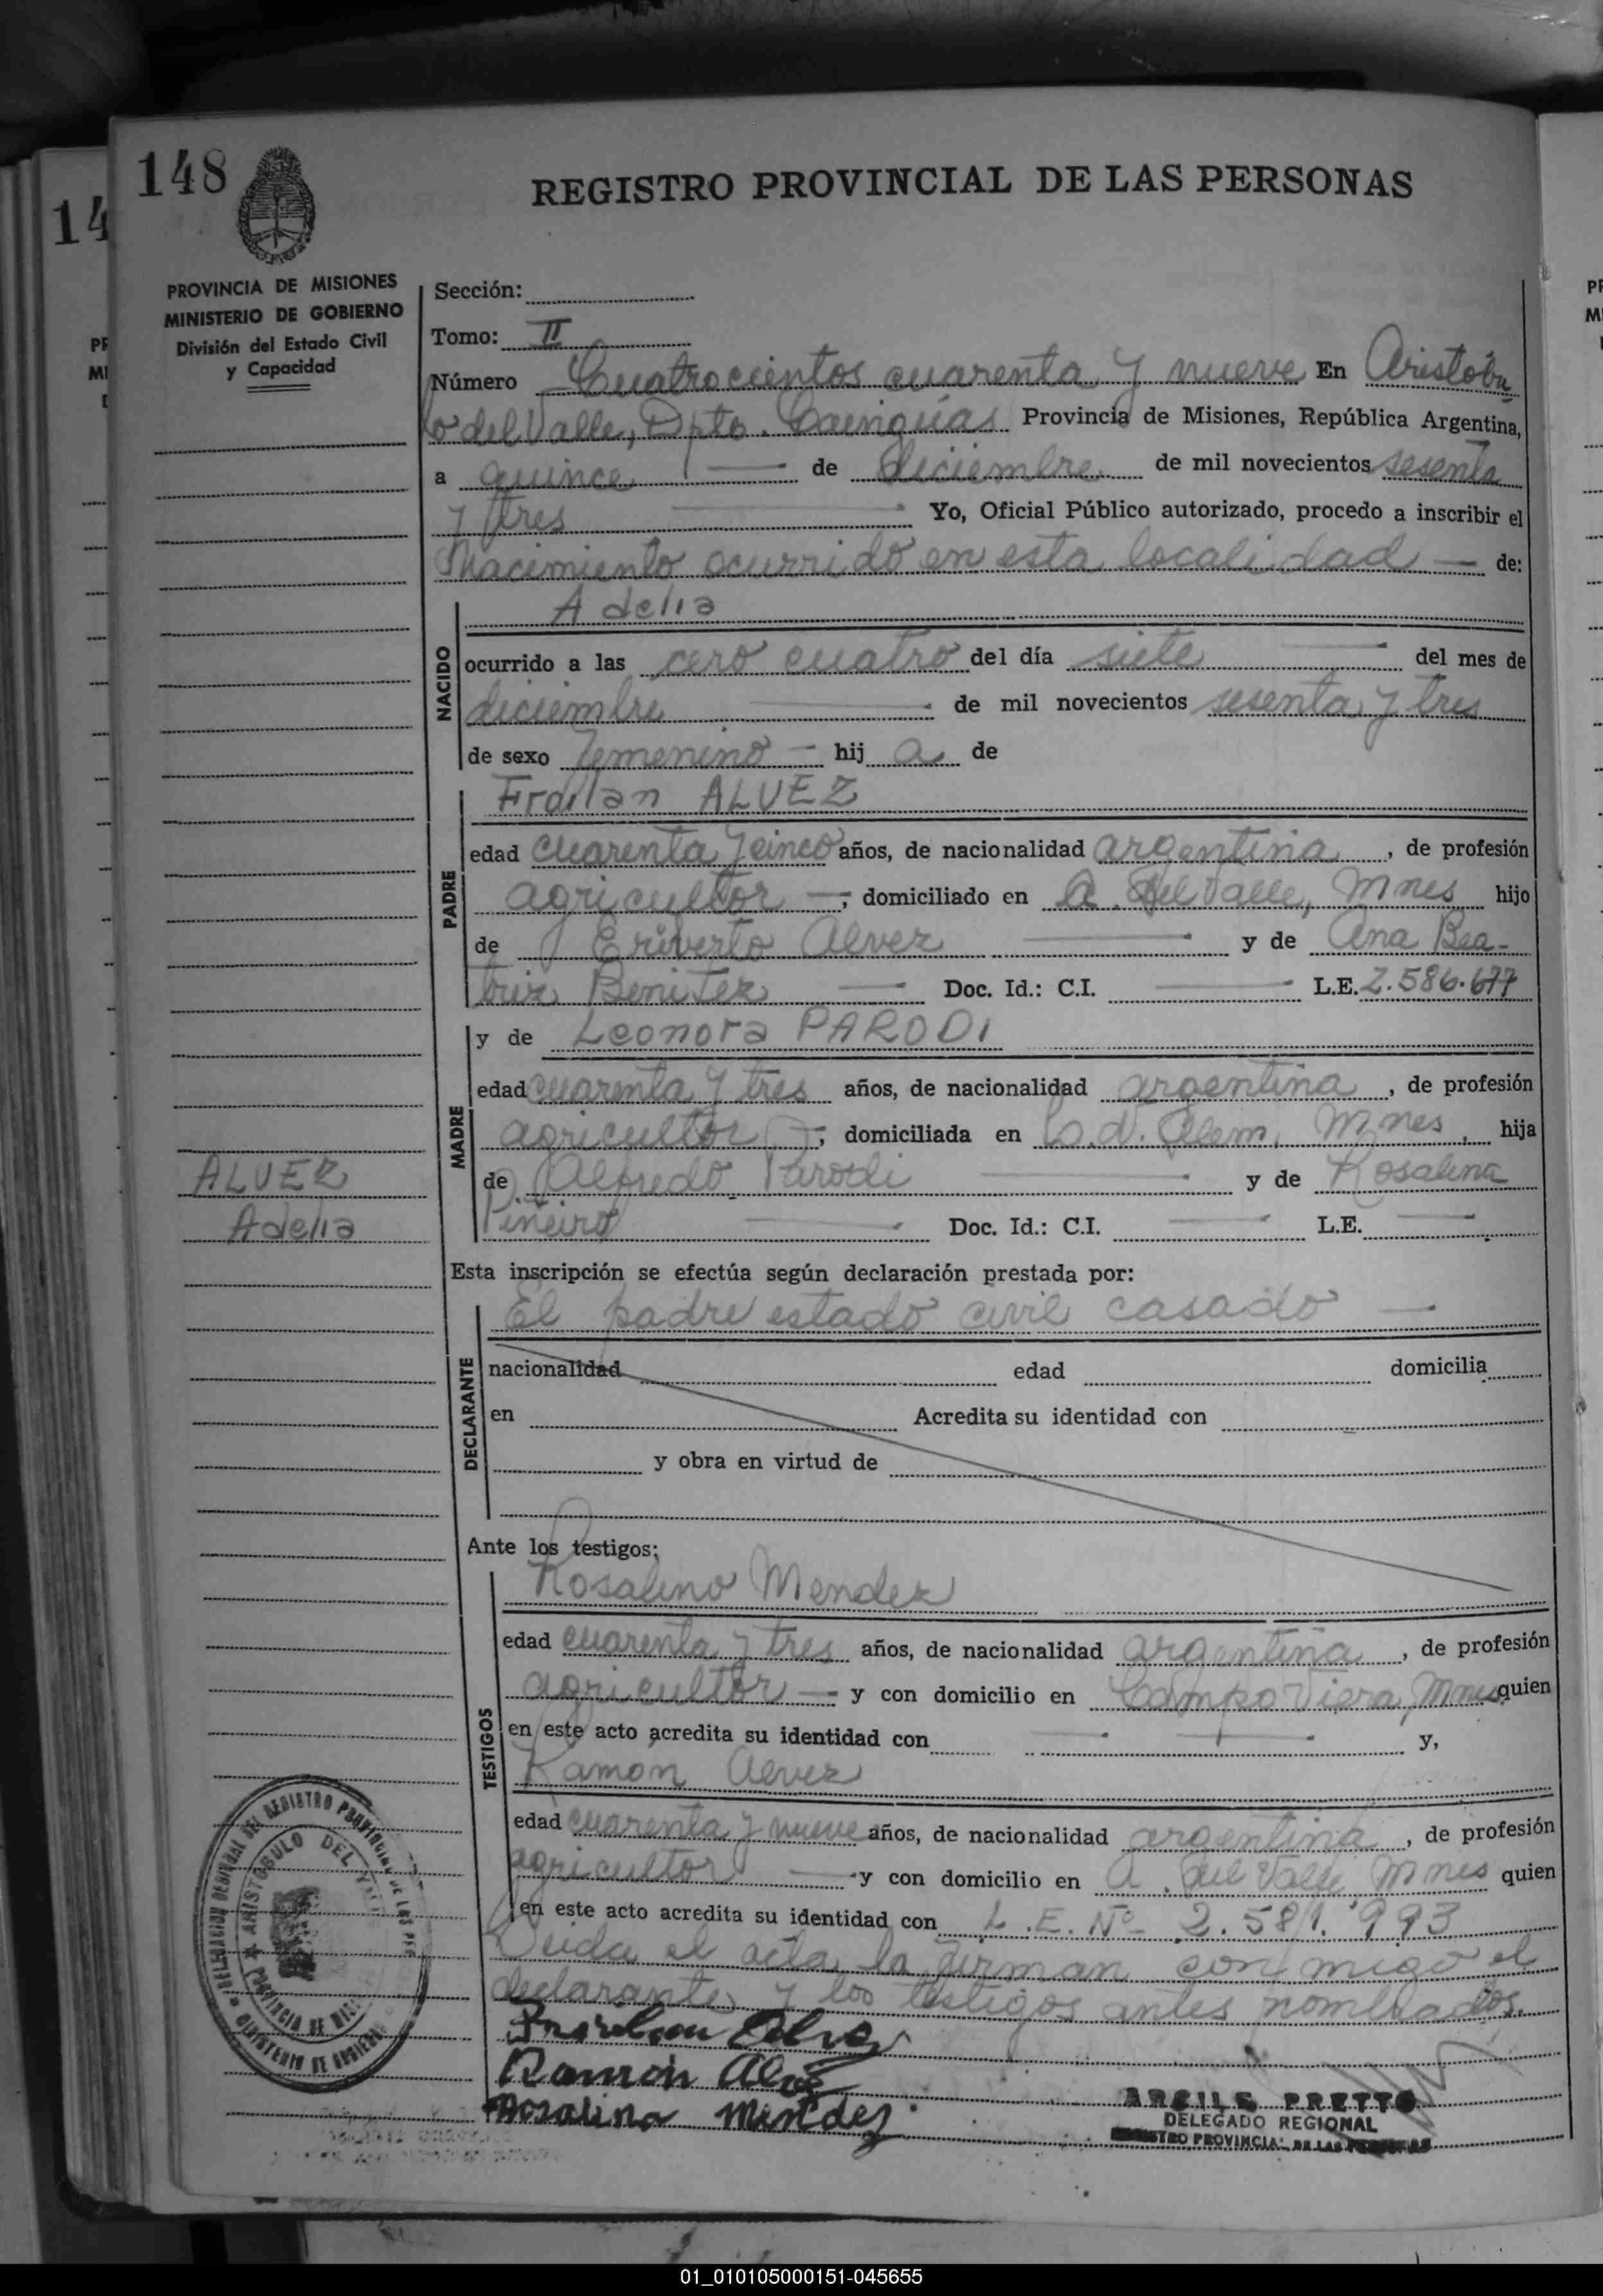 148
14
REGISTRO PROVINCIAL DE LAS PERSONAS
PROVINCIA DE MISIONES
MINISTERIO DE GOBIERNO
División del Estado Civil
y Capacidad
Sección:
Tomo: II
Número Cuatrocientos cuarenta y nueve En Aristóbu
lo del Valle, Dpto. Cainguás Provincia de Misiones, República Argentina,
a quince de diciembre de mil novecientos sesenta
y tres Yo, Oficial Público autorizado, procedo a inscribir el
Nacimiento ocurrido en esta localidad — de:
NACIDO
Adelia
ocurrido a las cero cuatro del día siete del mes de
diciembre de mil novecientos sesenta y tres
de sexo femenino — hij a de
PADRE
Froilan ALVEZ
edad cuarenta y cinco años, de nacionalidad argentina, de profesión
agricultor —; domiciliado en A. del Valle, Mnes hijo
de Eriverto Alvez y de Ana Bea-
triz Benitez — Doc. Id.: C.I. — L.E. 2.586.677
MADRE
y de Leonora PARODI
edad cuarenta y tres años, de nacionalidad argentina, de profesión
agricultor —; domiciliada en L.N. Alem, Mnes, hija
de Alfredo Parodi y de Rosalina
Piñeiro — Doc. Id.: C.I. — L.E. —
ALVEZ
Adelia
Esta inscripción se efectúa según declaración prestada por:
DECLARANTE
El padre estado civil casado —
nacionalidad edad domicilia
en Acredita su identidad con
y obra en virtud de
Ante los testigos:
TESTIGOS
Rosalino Mendez
edad cuarenta y tres años, de nacionalidad argentina, de profesión
agricultor — y con domicilio en Campo Viera, Mnes quien
en este acto acredita su identidad con — y,
Ramón Alvez
edad cuarenta y nueve años, de nacionalidad argentina, de profesión
agricultor — y con domicilio en A. del Valle Mnes quien
en este acto acredita su identidad con L.E. Nº 2.581.993
Leida el acta, la firman con migo el
declarante y los testigos antes nombrados.
Ramón Alvez
Rosalino Mendez
ARSILE PRETTO
DELEGADO REGIONAL
REGISTRO PROVINCIAL DE LAS PERSONAS
ARISTOBULO DEL VALLE
01_010105000151-045655